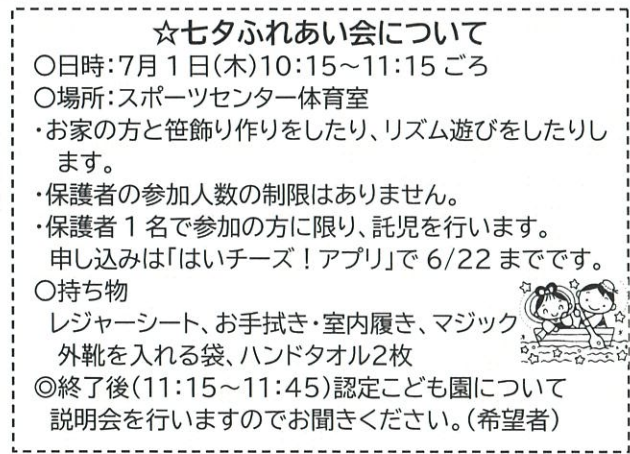 ☆七夕ふれあい会について
○日時：7月1日(木)10：15～11：15ごろ
○場所：スポーツセンター体育室
・お家の方と笹飾り作りをしたり、リズム遊びをしたりし
ます。
・保護者の参加人数の制限はありません。
・保護者1名で参加の方に限り、託児を行います。
申し込みは「はいチーズ！アプリ」で 6/22 までです。
○持ち物
レジャーシート、お手拭き・室内履き、マジック
外靴を入れる袋、ハンドタオル2枚
◎終了後(11：15～11：45)認定こども園について
説明会を行いますのでお聞きください。(希望者)